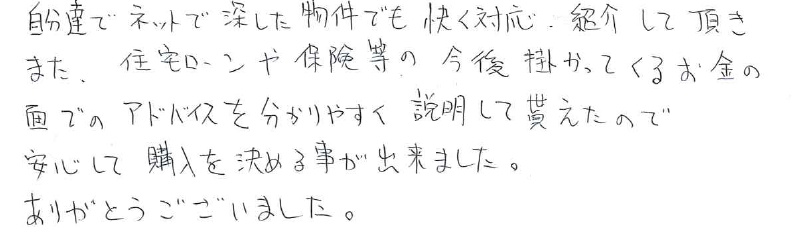 自分達でネットで探した物件でも快く対応、紹介して頂き
また、住宅ローンや保険等の今後掛かってくるお金の
面でのアドバイスを分かりやすく説明して貰えたので
安心して購入を決める事が出来ました。
ありがとうございました。